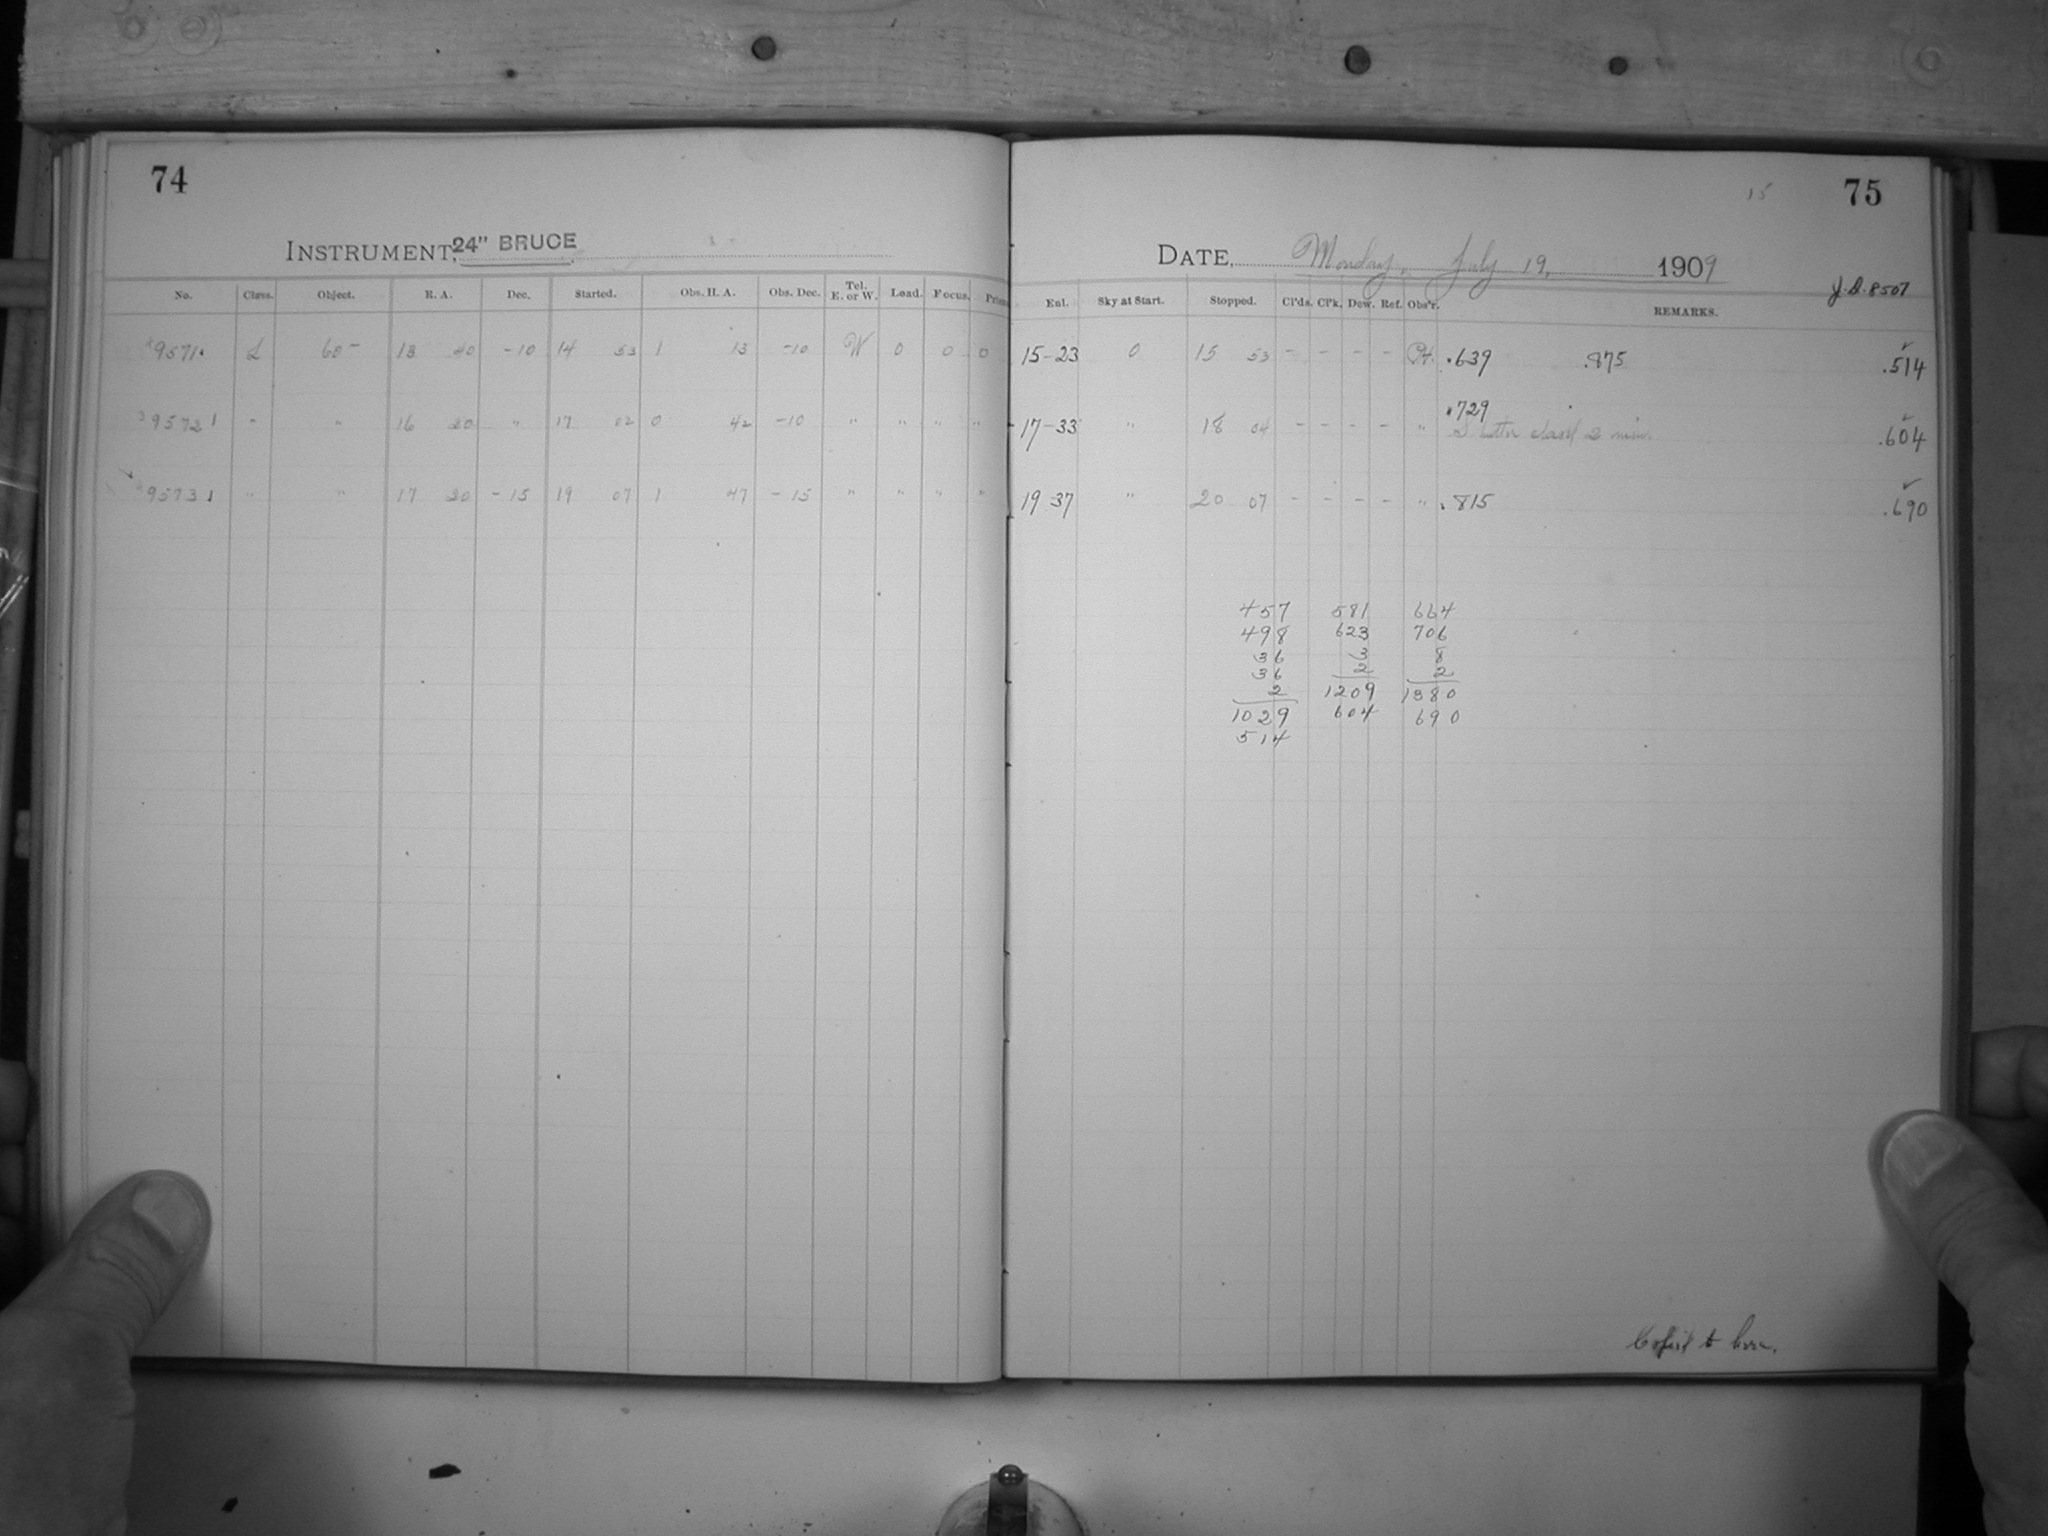 74
INSTRUMENT, 24" BRUCE
No. Class. Object. R. A. Dec. Started. Obs. H. A. Obs. Dec. Tel. E. or W. Load. Focus. Prism
9571 L 60- 13 40 -10 14 53 1 13 -10 W 0 0 0
9572 " " 16 20 " 17 02 0 42 -10 " " " "
9573 " " 17 20 -15 19 07 1 47 -15 " " " "
15 75
DATE, Monday, July 19, 1909
J.D. 8507
Enl. Sky at Start. Stopped. Cl'ds. Cl'k. Dew. Ref. Obs'r. REMARKS.
15-23 0 15 53 - - - - .639 .875 .514
.729
17-33 " 18 04 - - - - " Shutter clos'd 2 min. .604
19 37 " 20 07 - - - - " .815 .690
457 581 664
498 623 706
36 3 8
36 2 2
2 1209 1380
1029 604 690
514
Copied to here.